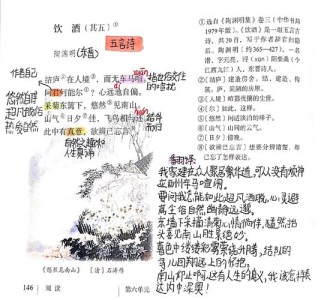 饮 酒（其五）①
陶渊明（东晋）
五言诗
结庐②在人境，而无车马喧。
问君何能尔③？心远地自偏。
采菊东篱下，悠然④见南山。
山气⑤日夕⑥佳，飞鸟相与
此中有真意，欲辨已忘言
作者自己
悠然自得
超凡脱俗
热爱自然
自然之趣和
人生真谛
结伴
而归
翻译:
我家建在众人聚居繁华道，可以没有烦神
去应酬车马喧闹。
要问我怎能如此超凡洒脱，心灵避
离尘俗自然幽静远邈。
东墙下采撷清菊心情徜徉，猛然抬
头喜见南山胜景绝妙。
暮色中缕缕彩雾萦绕升腾，结队的
鸟儿回翔远山的怀抱。
南山仰止啊，这有人生的真义，我该怎样表
达内中深奥！
①选自《陶渊明集》卷三（中华书局
1979年版）。《饮酒》是一组五言古
诗，共20首，写于作者辞官归隐
后。陶渊明（约365—427），一名
潜，字元亮，浔（xún）阳柴桑（今
江西九江）人，东晋诗人。
②〔结庐〕建造住宅。结，建造、构
筑。庐，简陋的房屋。
④〔悠然〕闲适淡泊的样子。
⑤〔山气〕山间的云气。
⑥〔日夕〕傍晚。
《悠然见南山》［清］石涛作
146 阅 读
第六单元